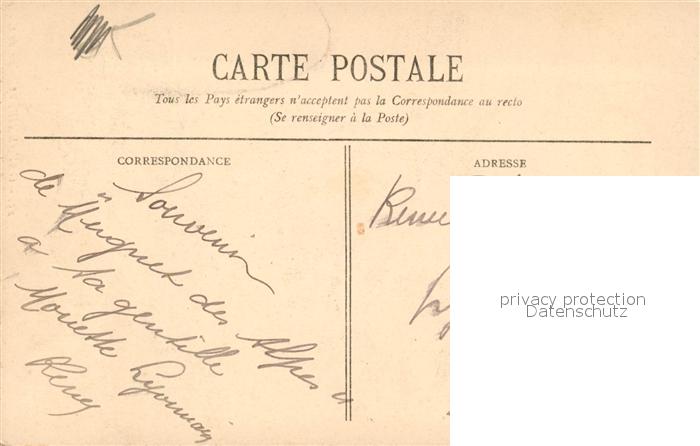 CARTE POSTALE
Tous les Pays étrangers n'acceptent pas la Correspondance au recto
(Se renseigner à la Poste)
CORRESPONDANCE
ADRESSE
Souvenir
de "Muguet des Alpes"
a sa gentille
Mouette Lyonnais
René
privacy protection
Datenschutz